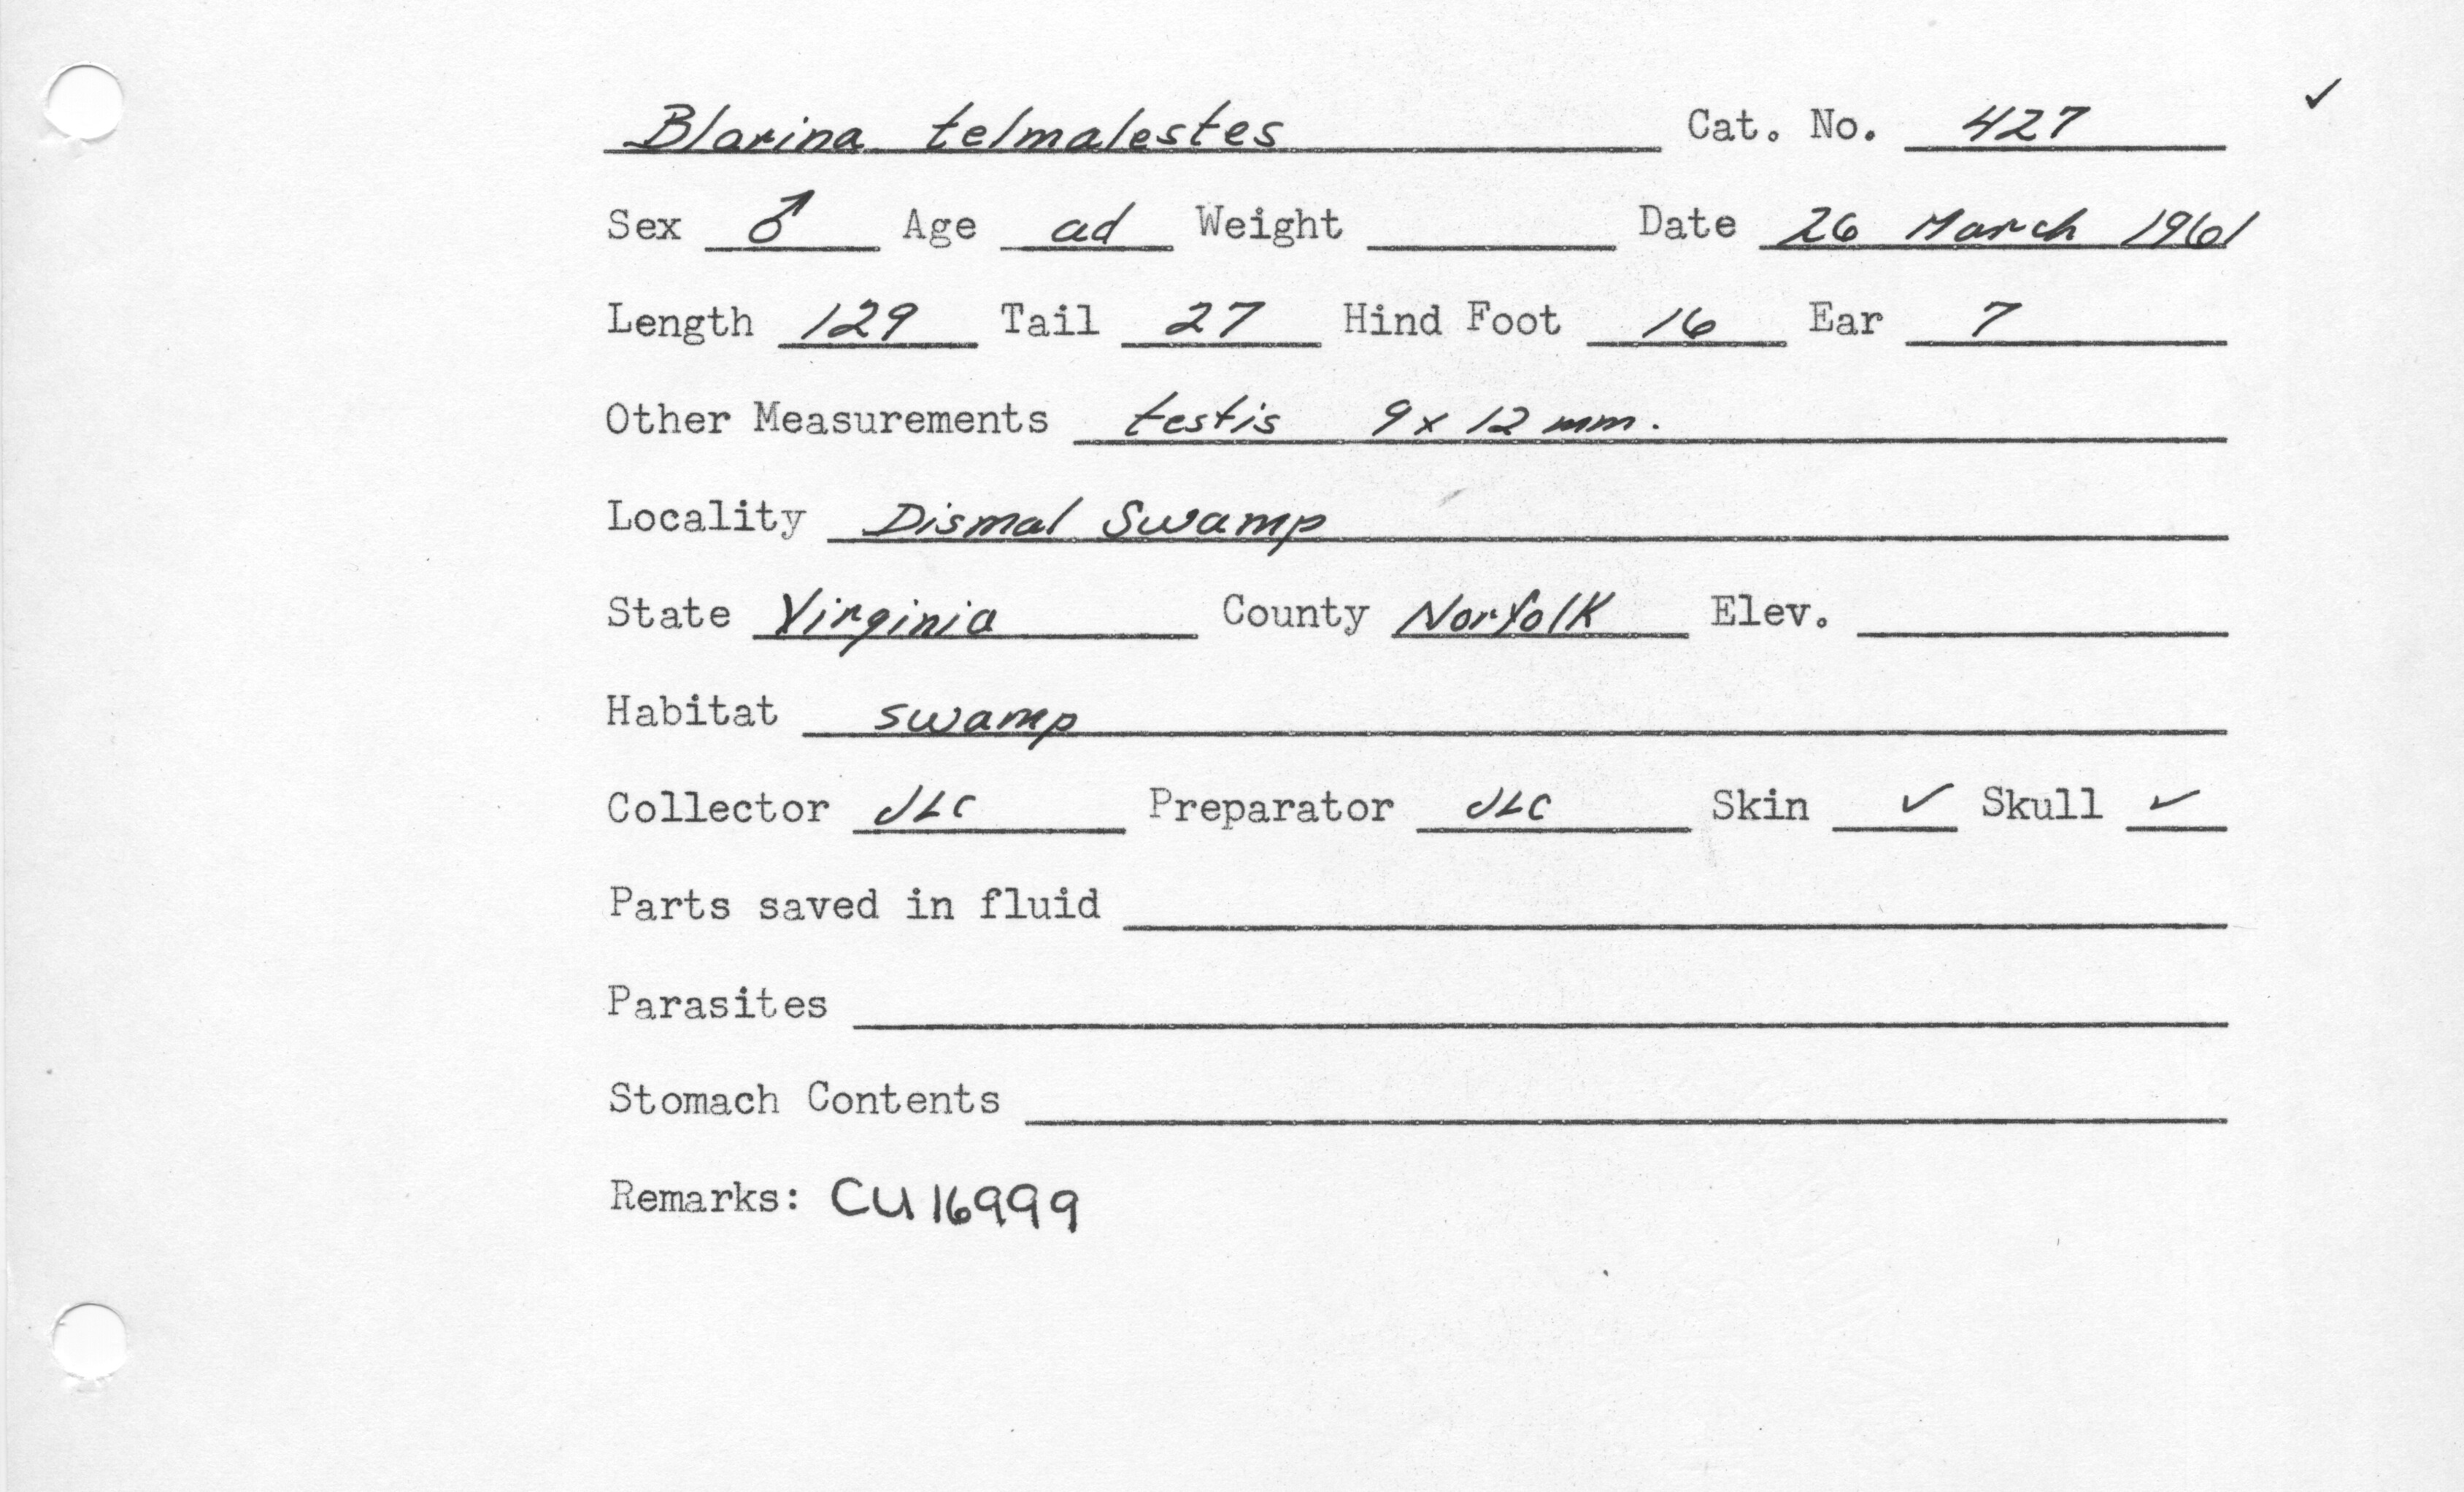 Blarina telmalestes Cat. No. 427 ✓
Sex ♂ Age ad Weight Date 26 March 1961
Length 129 Tail 27 Hind Foot 16 Ear 7
Other Measurements testis 9 x 12 mm.
Locality Dismal Swamp
State Virginia County Norfolk Elev.
Habitat swamp
Collector JLC Preparator JLC Skin ✓ Skull ✓
Parts saved in fluid
Parasites
Stomach Contents
Remarks: CU 16999